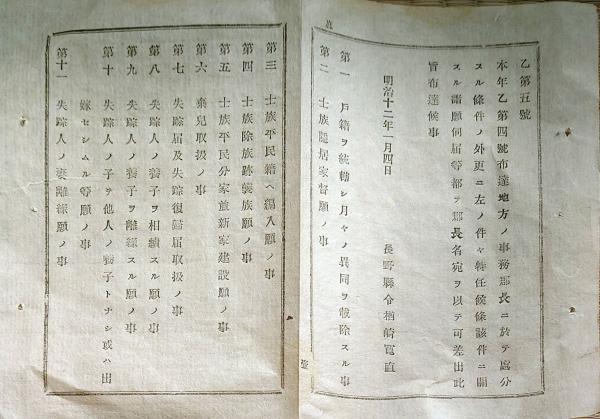 乙第五號
本年乙第四號布達地方ノ事務郡長ニ於テ處分
スル條件ノ外更ニ左ノ件々特任候條該件ニ關
スル請願伺届等都テ郡長名宛ヲ以テ可差出此
旨布達候事
明治十二年一月四日
長野縣令楢崎寛直
第一 戸籍ヲ統轄シ月々ノ異同ヲ載除スル事
第二 士族隠居家督願ノ事
第三 士族平民籍ヘ編入願ノ事
第四 士族除族跡襲族願ノ事
第五 士族平民分家並新家建設願ノ事
第六 棄兒取扱ノ事
第七 失踪届及失踪復歸届取扱ノ事
第八 失踪人ノ養子ヲ相續スル願ノ事
第九 失踪人ノ養子ヲ離縁スル願ノ事
第十 失踪人ノ子ヲ他人ノ養子トナシ或ハ出
嫁セシムル等願ノ事
第十一 失踪人ノ妻離縁願ノ事